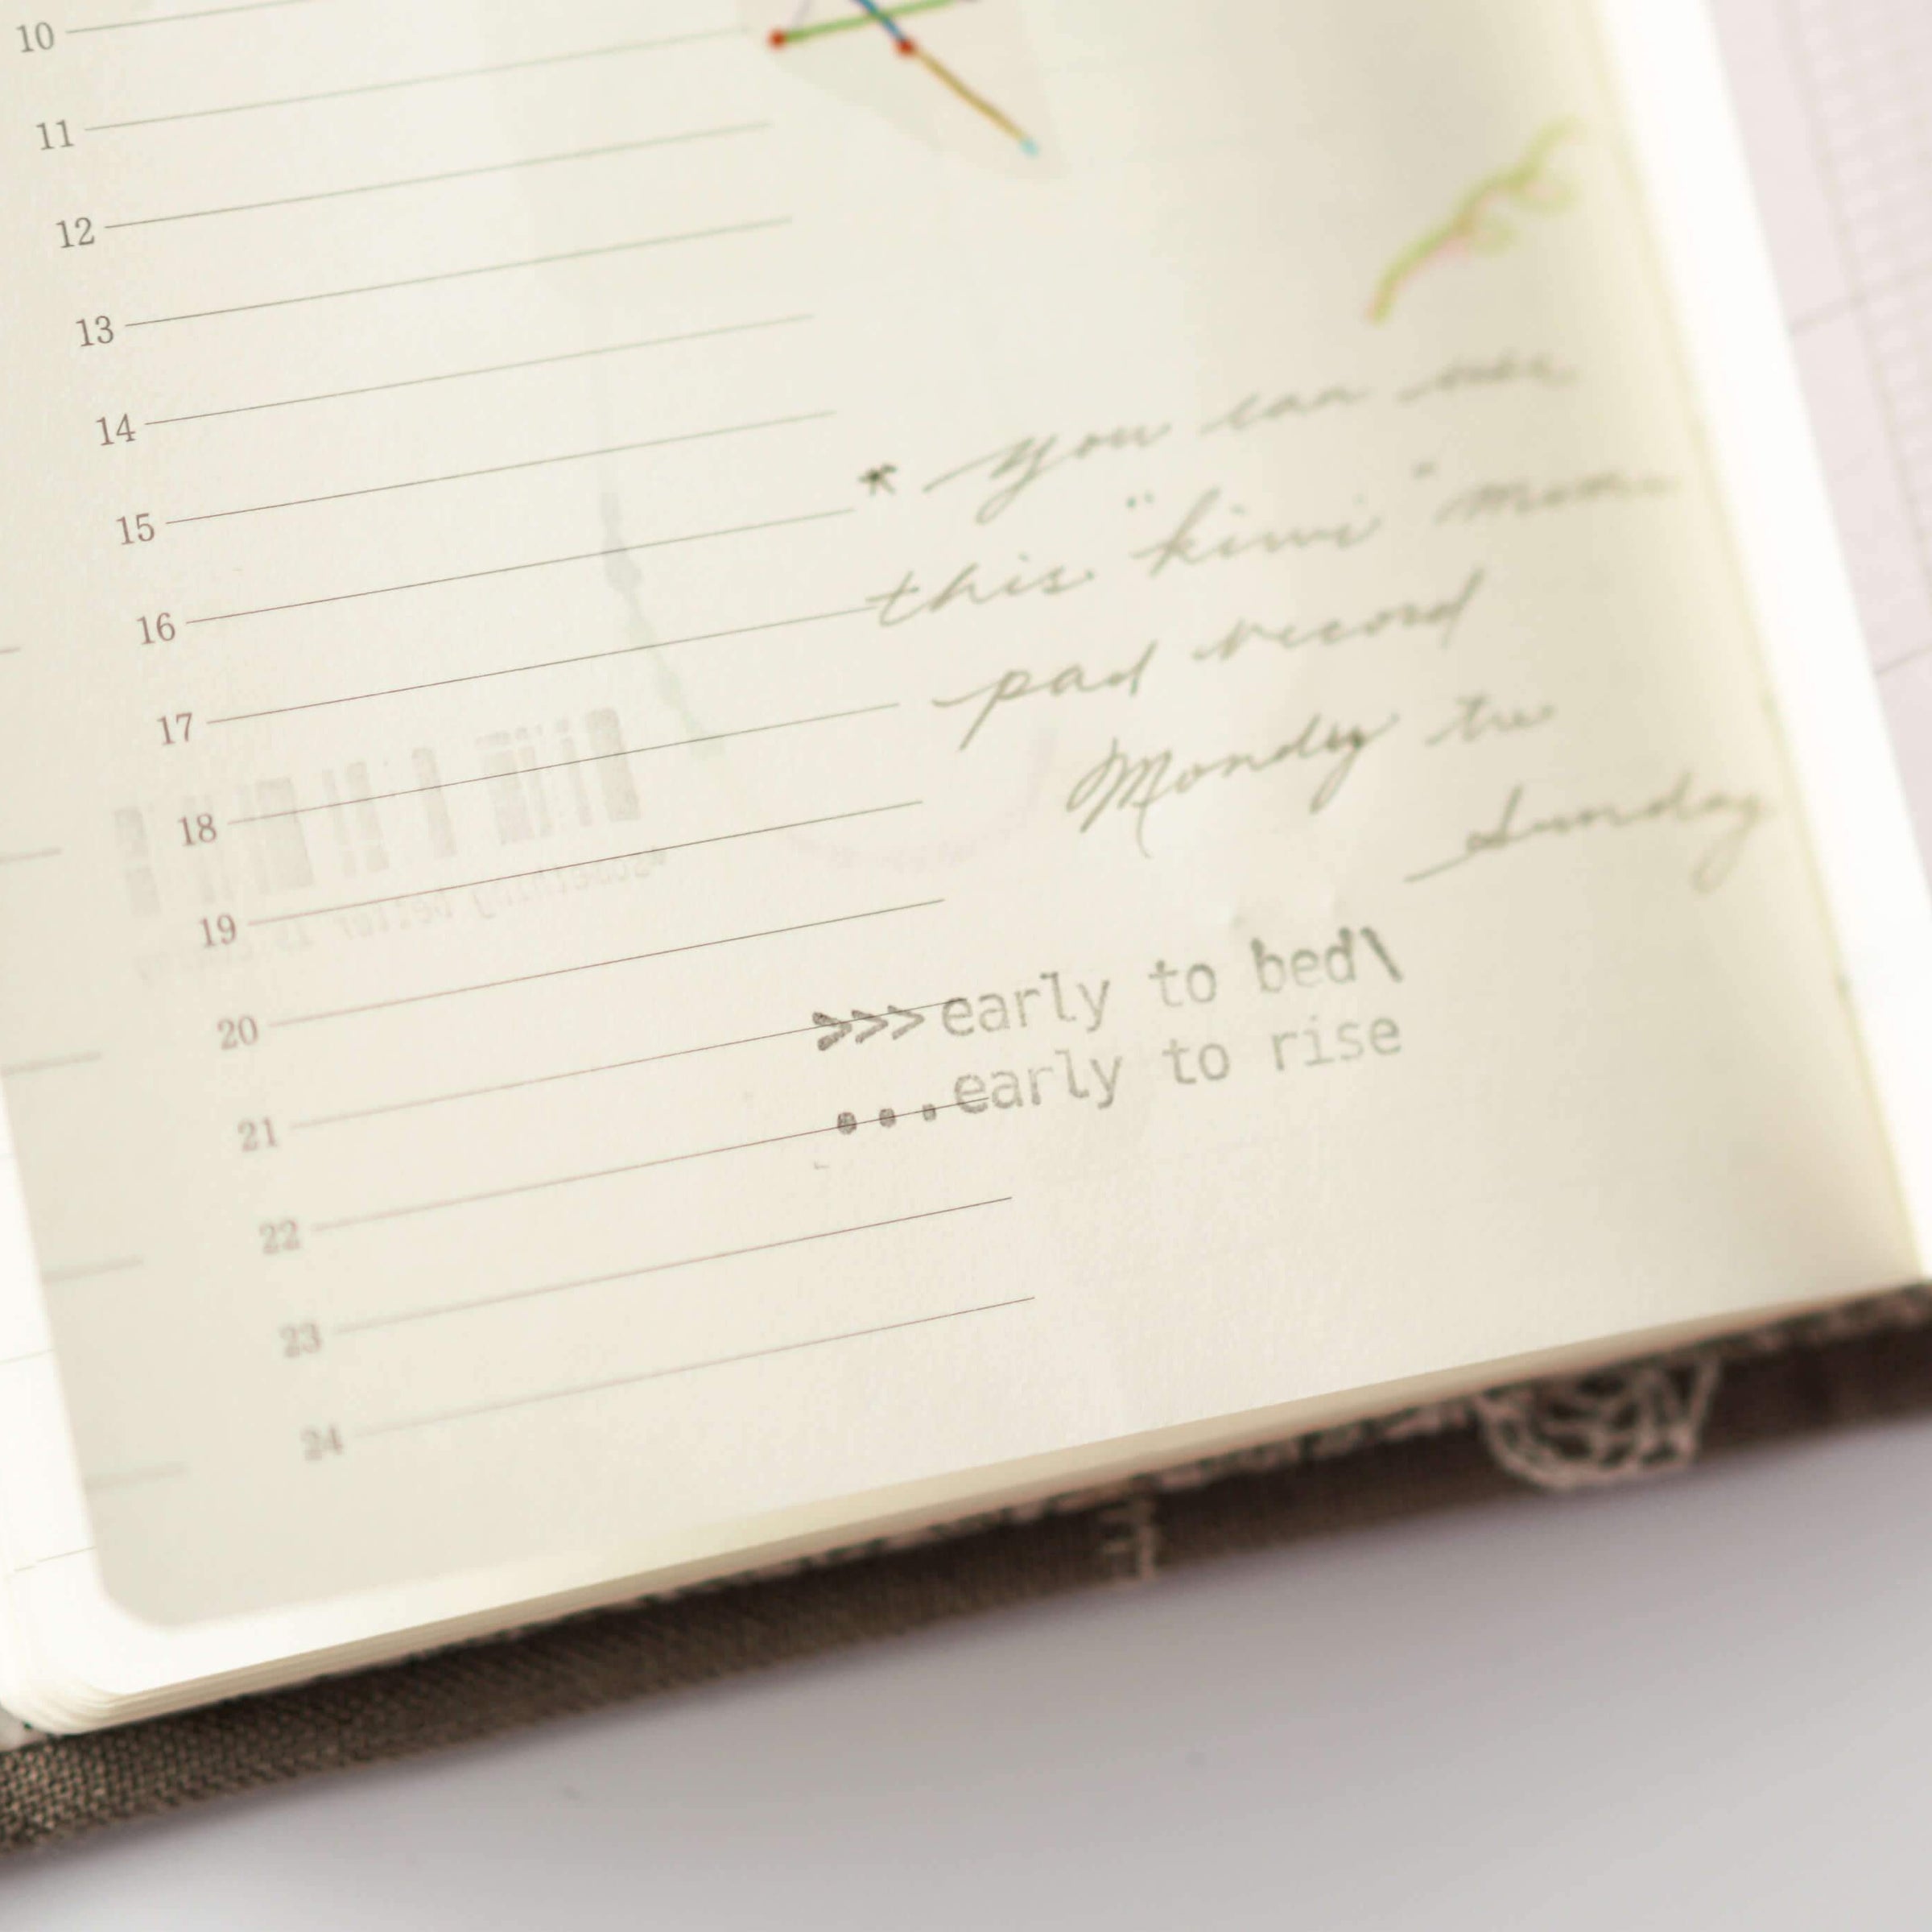 10
11
12
13
14
15
16
17
18
19
20
21
22
23
24
* You can use
this "kiwi" memo
pad record
Mondy tu
Sunday
>>>early to bed\
...early to rise
*something better is